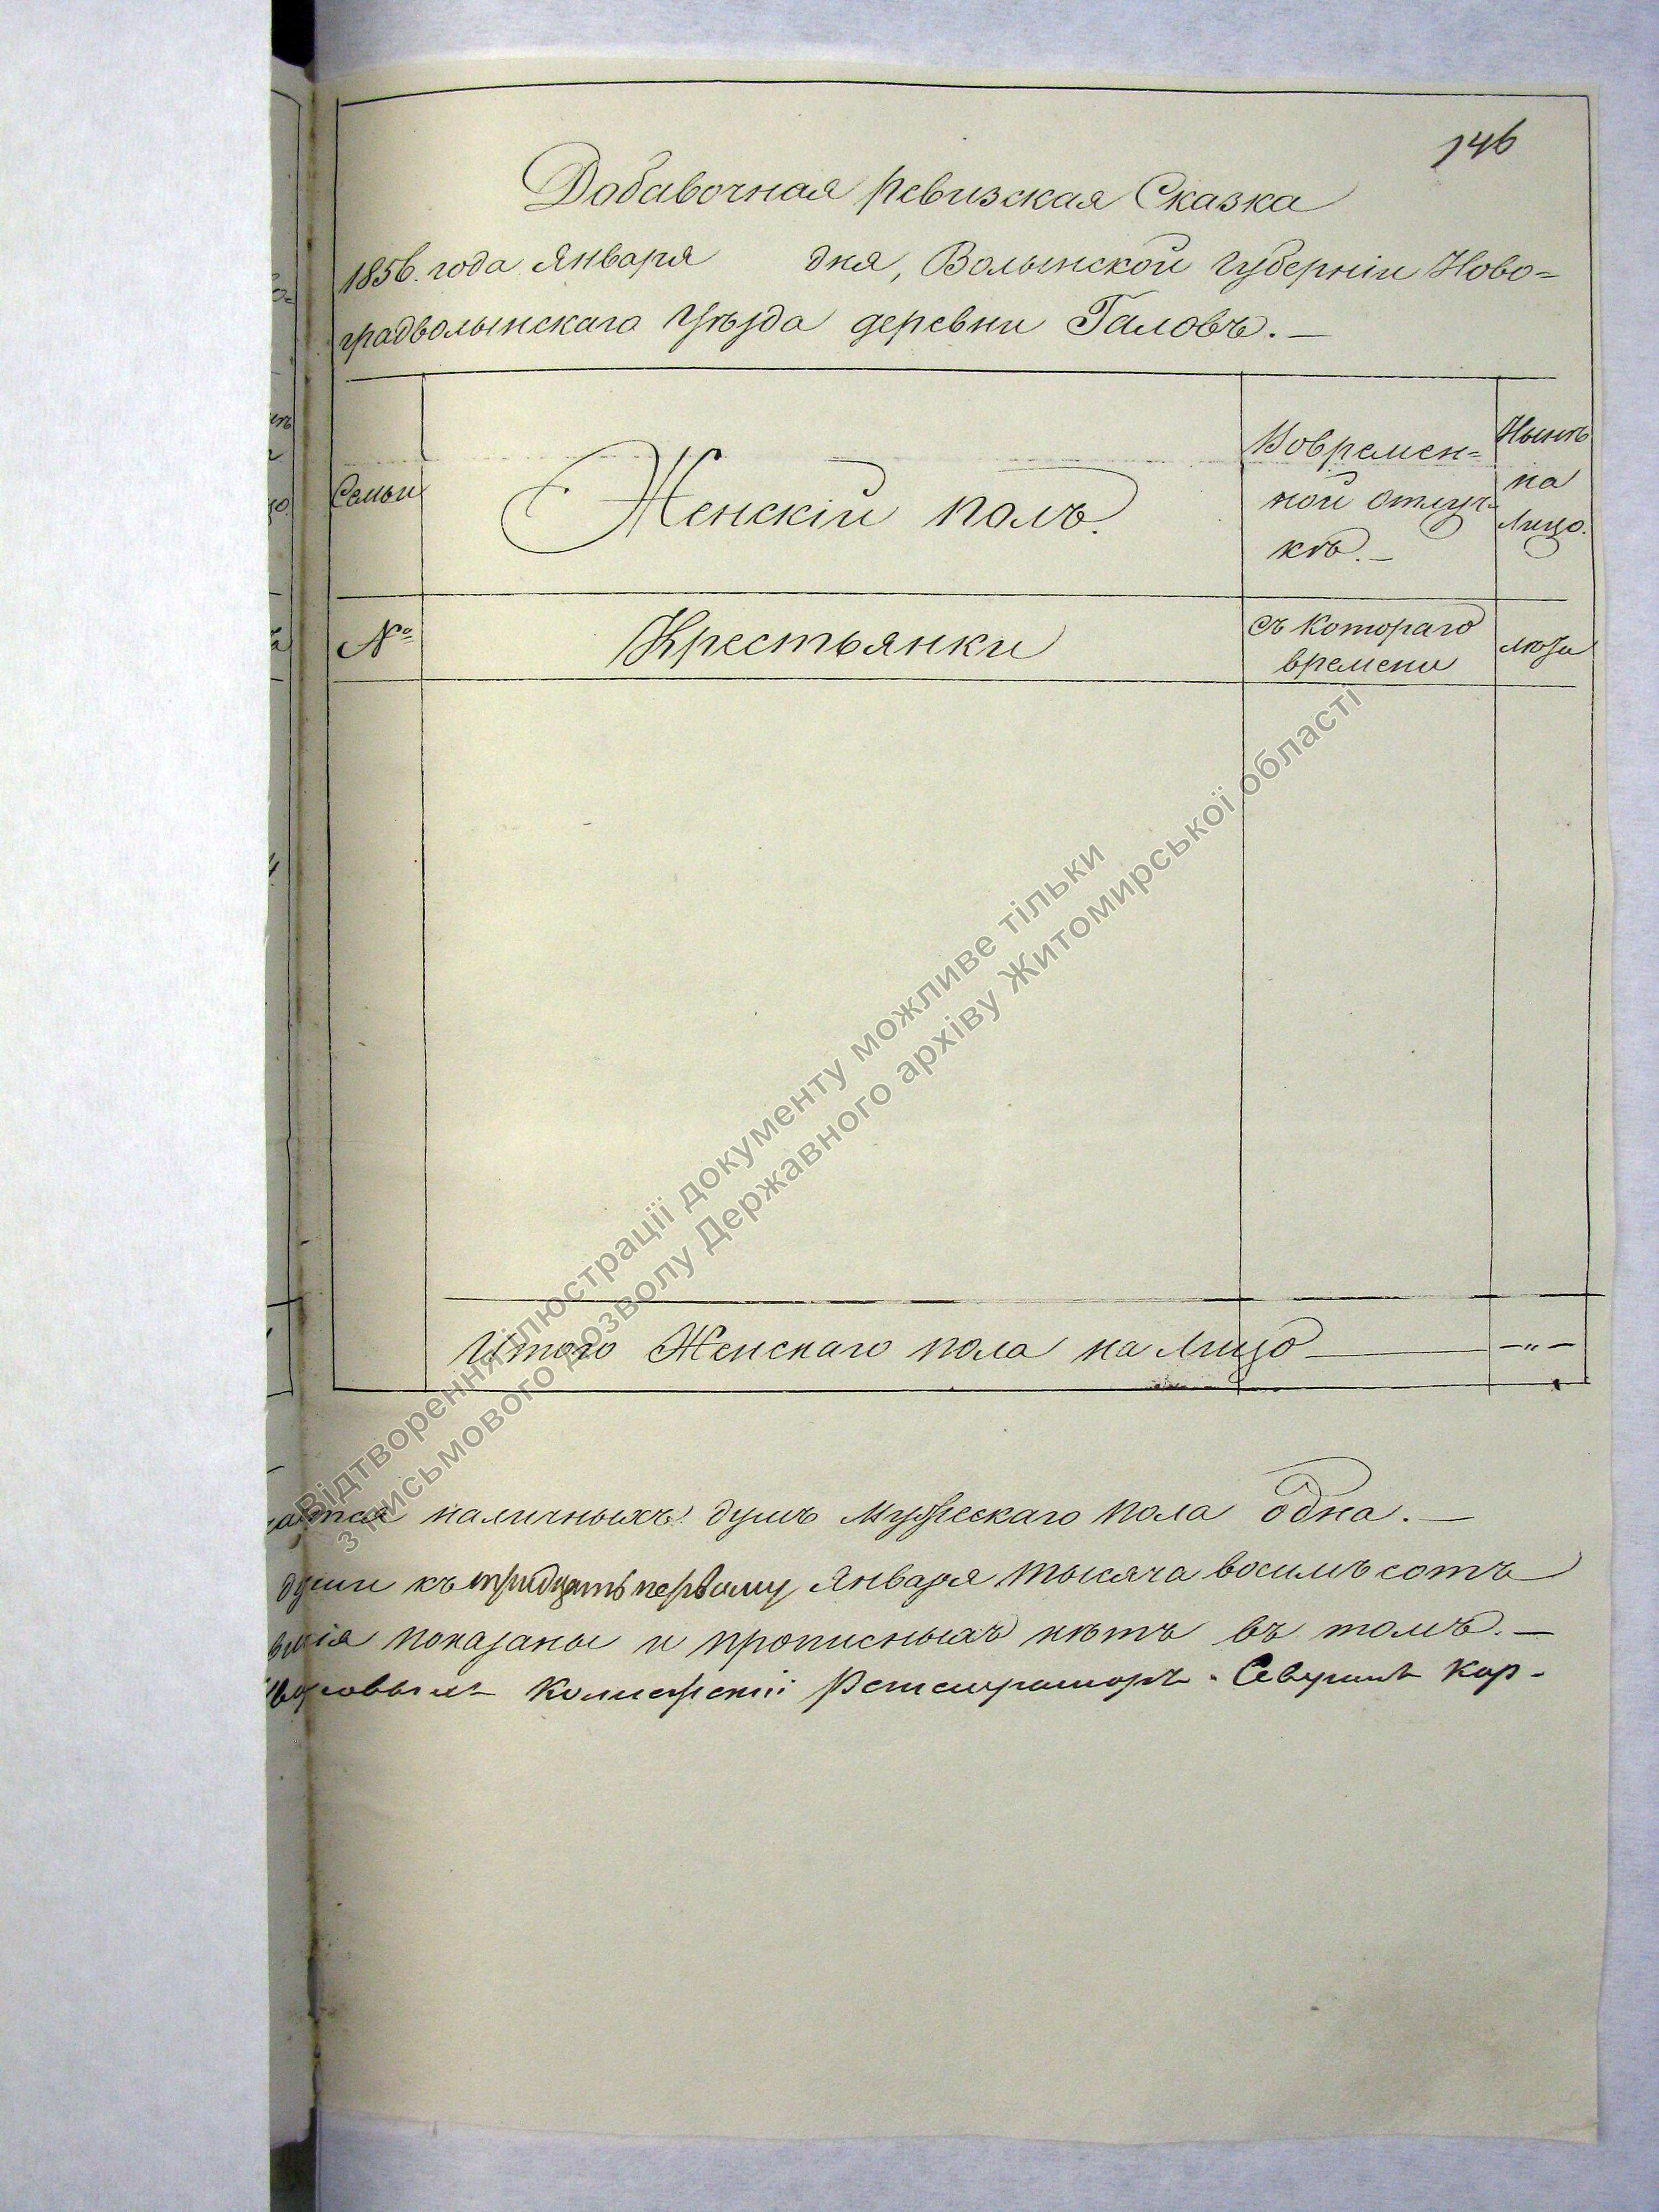 146
Добавочная ревизская Сказка
1856. года Января дня, Волынской губерніи Ново=
градволынскаго Уѣзда деревни Галовъ.—
Семьи
Женскій полъ.
Вовремен=
ной отлуч-
кѣ.—
Нынѣ
на
лицо.
№
Крестьянки
Съ котораго
времени
люди
Итого Женскаго пола на лицо — „ —
наличныхъ душъ Мужескаго пола одна.—
души къ тридцать первому Января тысяча восемь сотъ
показаны и прописныхъ нѣтъ въ томъ.—
Колежскій Регистраторъ Кор-
Відтворення ілюстрації документу можливе тільки
з письмового дозволу Державного архіву Житомирської області